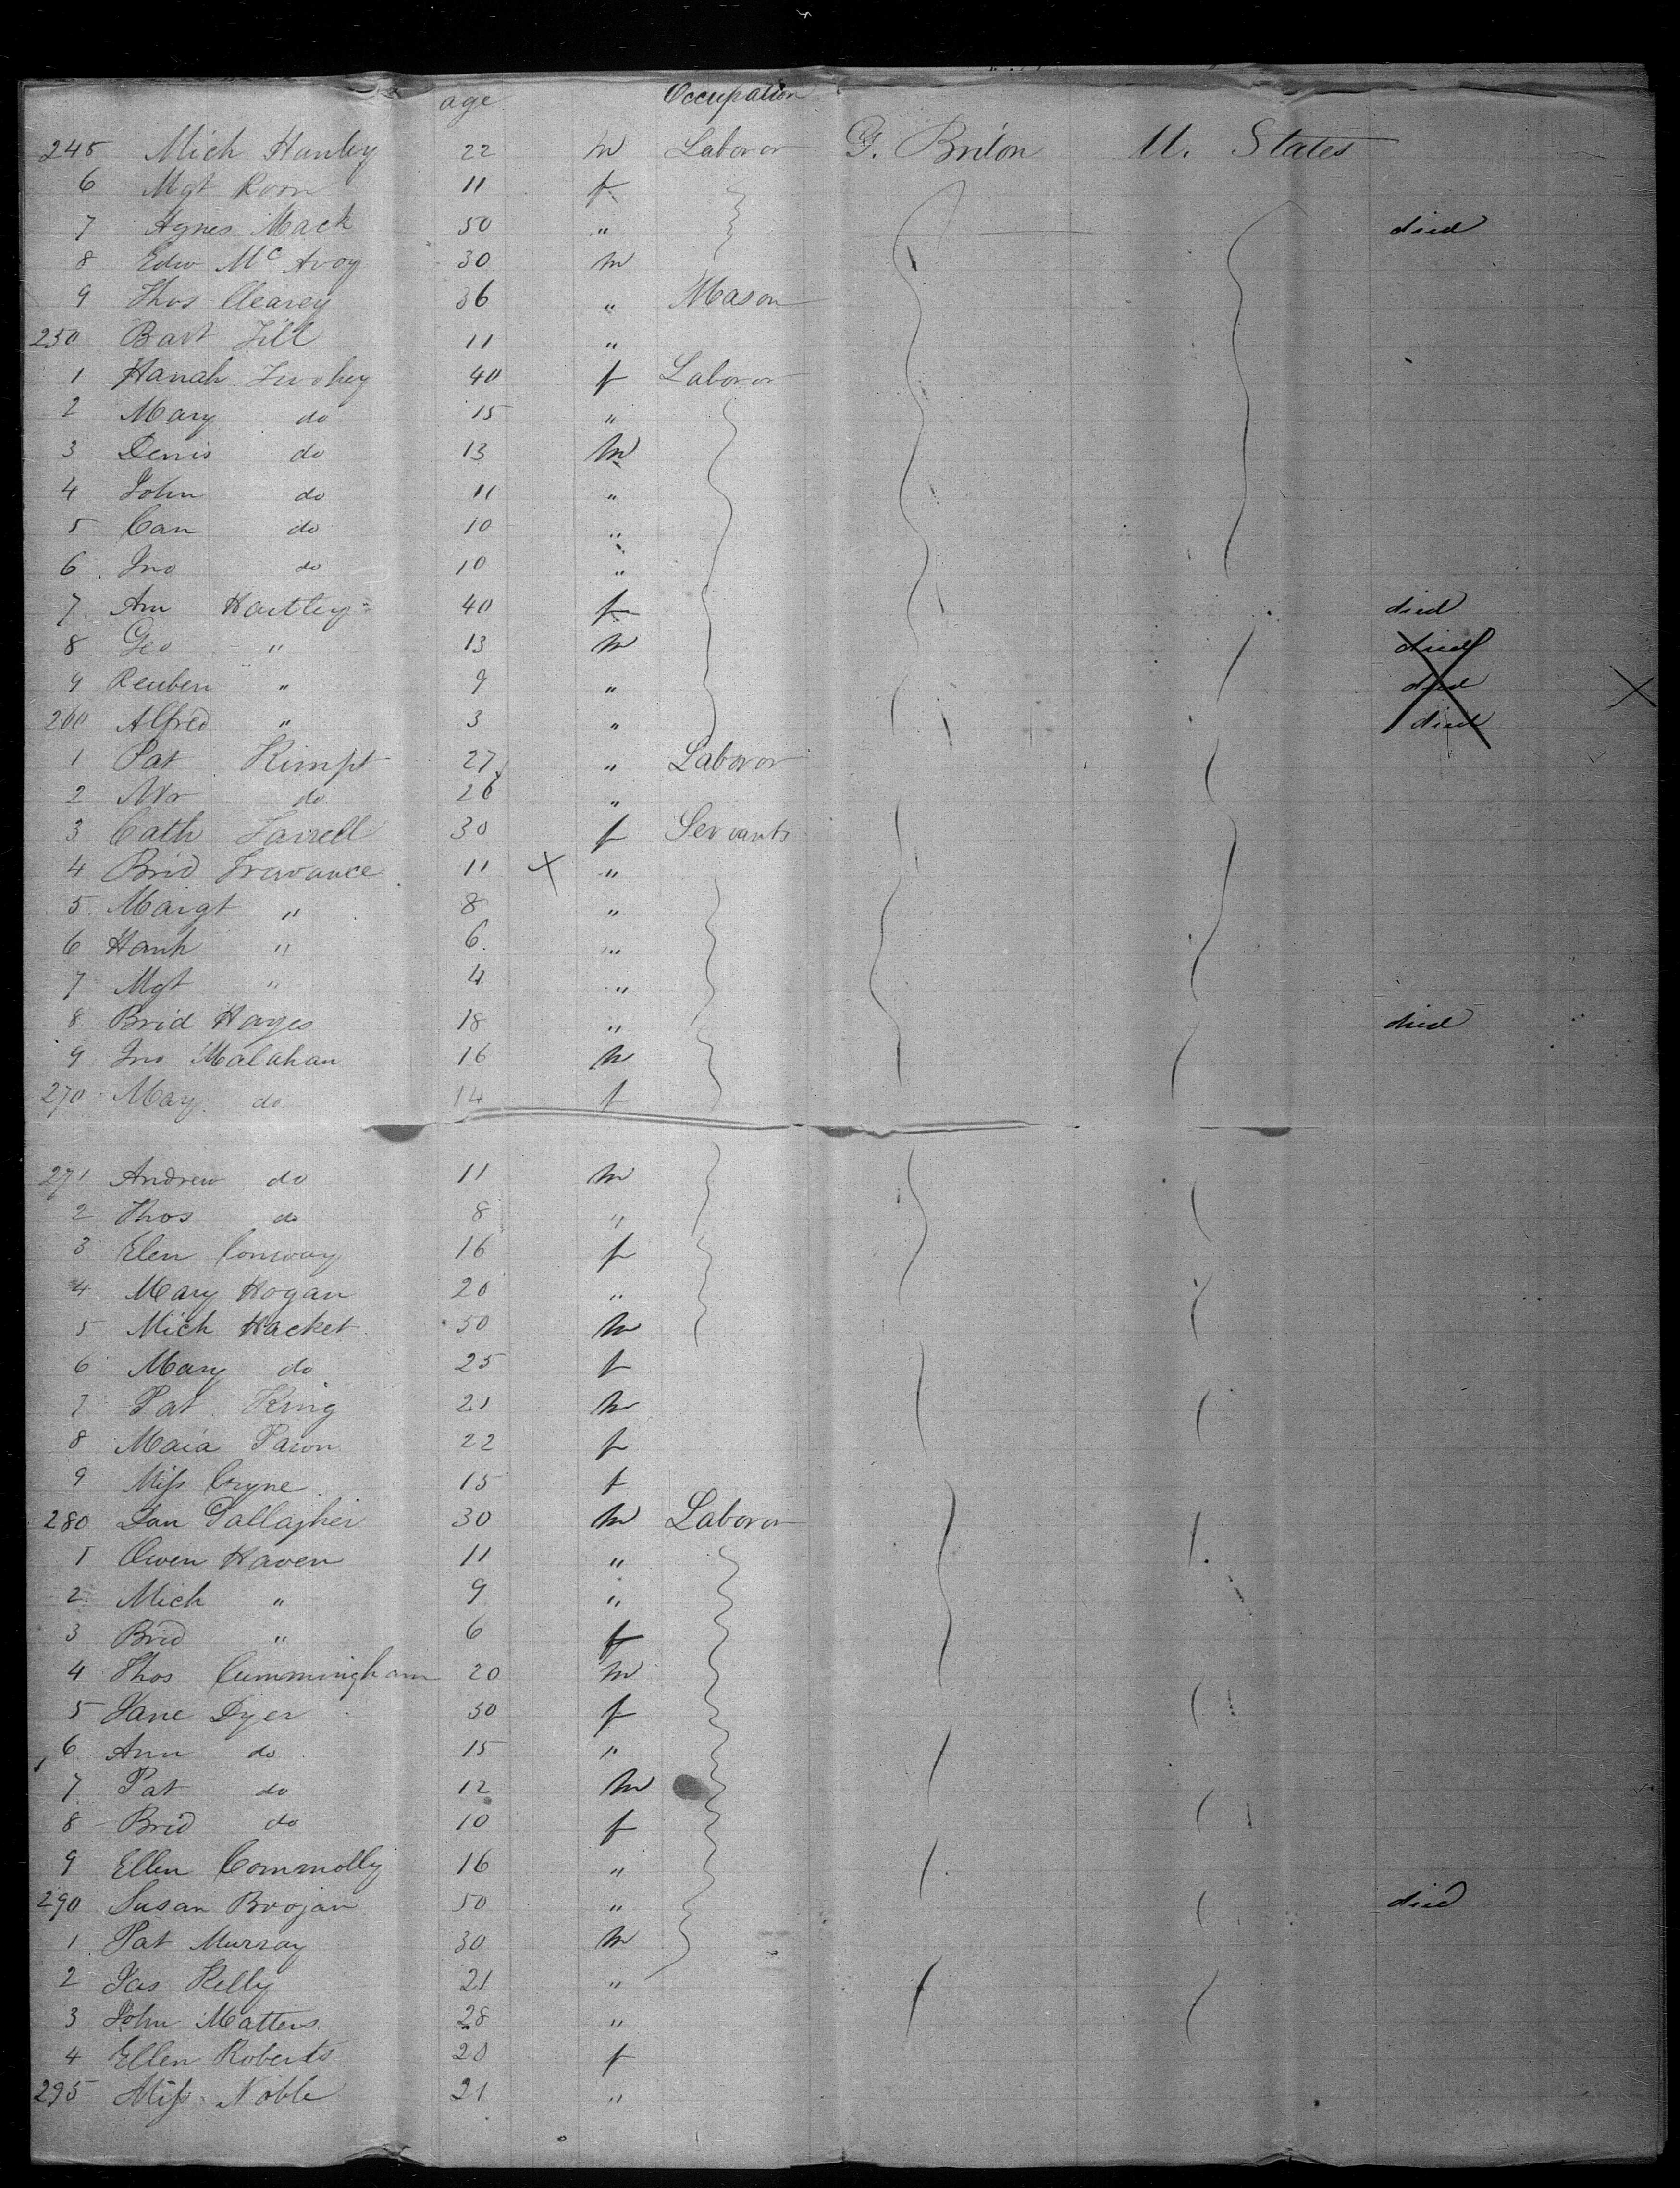 age Occupation
245 Mich Hanley 22 m Laboror G. Briton U. States
6 Mgt Roon 11 f
7 Agnes Mack 50 " died
8 Edw Mc Avoy 30 m
9 Thos Clearey 36 " Mason
250 Bart Till 11 "
1 Hanah Twohey 40 f Laboror
2 Mary do 15 "
3 Denis do 13 m
4 John do 11 "
5 Can do 10 "
6 Jno do 10 "
7 An Hartley 40 f died
8 Geo " 13 m died
9 Reuben " 9 " died
260 Alfred " 3 " died
1 Pat Kimpt 27 " Laboror
2 do 26 "
3 Cath Farrell 30 f Servants
4 Brid Travance 11 "
5 Margt " 8 "
6 Hanh " 6 "
7 Mgt " 4 "
8 Brid Hayes 18 " died
9 Jno Malahan 16 m
270 Mary do 14 f
271 Andrew do 11 m
2 Thos do 8 "
3 Elen Conway 16 f
4 Mary Hogan 20 "
5 Mich Hacket 50 m
6 Mary do 25 f
7 Pat King 21 m
8 Maia 22 f
9 Miss Cryne 15 f
280 Dan Gallagher 30 m Laboror
1 Owen Haven 11 "
2 Mich " 9 "
3 Brid " 6 f
4 Thos Cummingham 20 m
5 Jane Dyer 50 f
6 Ann do 15 "
7 Pat do 12 m
8 Brid do 10 f
9 Ellen Commolly 16 "
290 Susan Brojan 50 " died
1 Pat Murray 30 m
2 Jas Kelly 21 "
3 John Matters 28 "
4 Ellen Roberts 20 f
295 Miss Noble 21 "